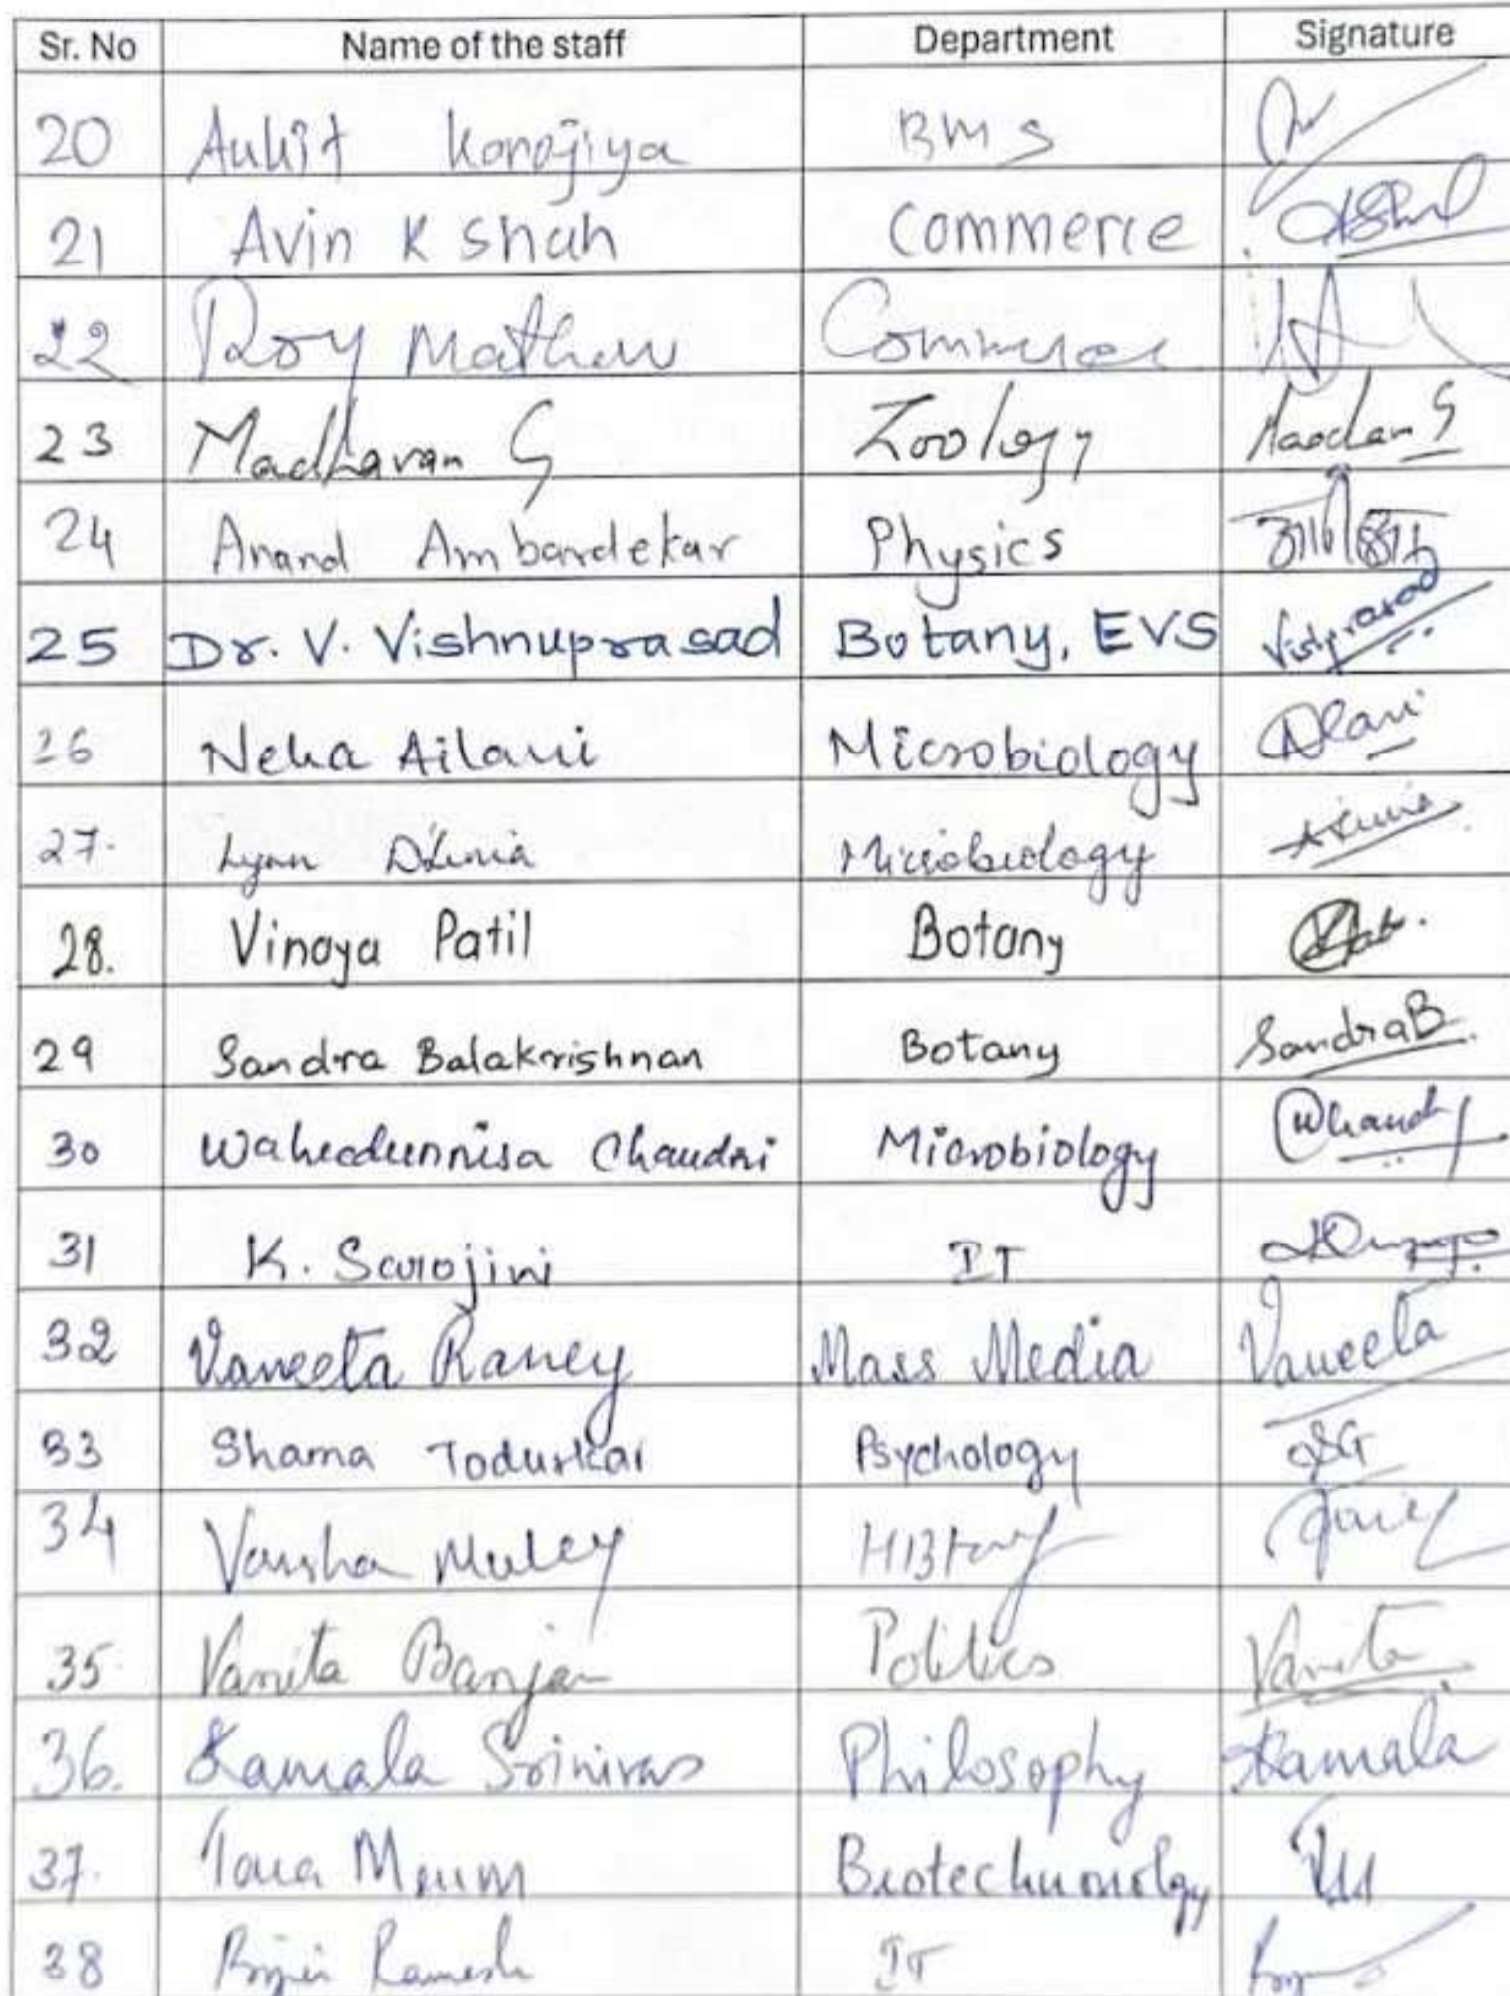 Sr. No Name of the staff Department Signature
20 Ankit Konojiya BMS
21 Avin K Shah Commerce
22 Roy Mathew Commerce
23 Madhavan G Zoology
24 Anand Ambardekar Physics
25 Dr. V. Vishnuprasad Botany, EVS
26 Neha Ailani Microbiology
27. Lynn Microbiology
28. Vinaya Patil Botany
29 Sandra Balakrishnan Botany Sandra B
30 Waheedunnisa Chaudri Microbiology
31 K. Sarojini IT
32 Vaneeta Raney Mass Media Vaneeta
33 Shama Todurkar Psychology
34 Varsha Muley History
35 Vanita Banjan Politics Vanita
36. Kamala Srinivas Philosophy Kamala
37. Biotechnonolgy
38 Ramesh IT